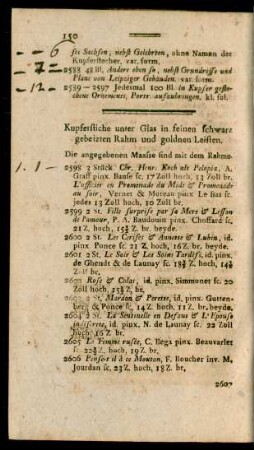 150
6
fer Sachsen, nebst Gelehrten, ohne Namen der
Kupferstecher. var. form.
7
2588 48 Bl. Andere eben so, nebst Grundrisse und
Plane von Leipziger Gebäuden. var. form.
12
2589 - 2597 Jedesmal 100 Bl. in Kupfer gesto-
chene Ornements, Portr. aufzubringen, kl. fol.
Kupferstiche unter Glas in feinen schwarz
gebeizten Rahm und goldnen Leisten.
Die angegebenen Maasse sind mit dem Rahme.
1. 1
2598 3 Stück Chr. Henr. Koch als Pelopia, A.
Graff pinx. Bause sc. 17 Zoll hoch, 13 Zoll br.
L'officier en Promenade du Mode & Promenade
au soir, Vernet & Moreau pinx Le Bas sc.
jedes 13 Zoll hoch, 10 Zoll br.
2599 2 St. Fille surprise par sa Mere & Lesson
de l'amour, P. A. Baudouin pinx. Choffard sc.
21 Z. hoch, 15½ Z. br. beyde.
2600 2 St. Les Cerises & Annette & Lubin, id.
pinx. Ponce sc. 21 Z. hoch, 16 Z. br. beyde.
2601 2 St. Le Soir & Les Soins Tardifs, id. pinx.
de Ghendt & de Launay sc. 18 Z. hoch, 14
Zoll br.
2602 Rose & Colas, id. pinx. Simmonet sc. 20
Zoll hoch, 15 Z. br.
2603 2 St. Marton & Perette, id. pinx. Gutten-
berg & Ponce sc. 14 Z. hoch, 11 Z. br. beyde.
2604 2 St. La Sentinelle en Defaut & L'Epouse
indiscrete, id. pinx. N. de Launay sc. 22 Zoll
hoch, 16 Z. br.
2605 La Femme rusée, C. Bega pinx. Beauvarlet
sc. 22 Z. hoch, 19 Z. br.
2606 Pense-t il à ce Mouton, F. Boucher inv. M.
Jourdan sc. 23 Z. hoch, 18 Z. br.
2607